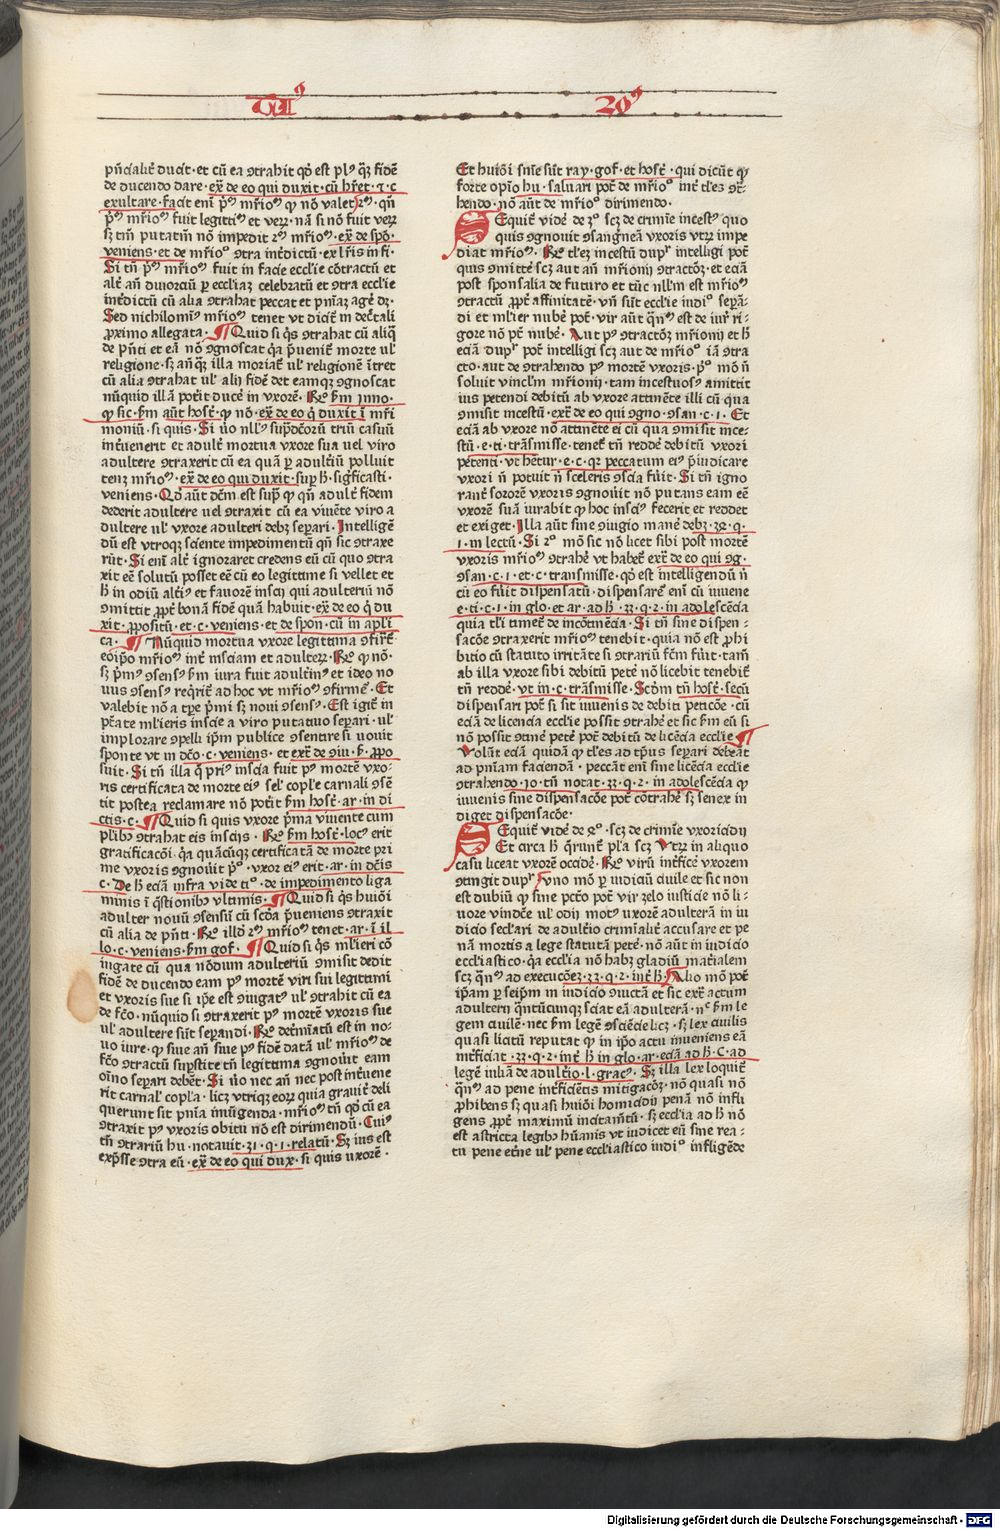 pñcialit᷑ ducit · et cū ea ꝯtrahit qđ est pl᷒ q̃ꝫ fidē
de ducendo dare · ex̃ de eo qui duxit · cū hr̃et · ⁊ · c
exultare · facit enī p᷒ mr̃io᷒ ꝙ nō valet · qñ
p᷒ mr̃io᷒ fuit legitti᷒ et veꝝ · nā si nō fuit veꝝ
sꝫ tm̃ putatiuū nō impedit · ex̃ de spō ·
veniens · et de mr̃io᷒ ꝯtra int᷑dictū · ex lr̃is in fi ·
Si tñ p᷒ mr̃io᷒ fuit in facie eccl'ie cōtractū et
alt᷑ añ diuorciū ꝑ eccl'iaꝫ celebratū et ꝯtra eccl'ie
int᷑dictū cū alia ꝯtrahat peccat et pn̄iaꝫ ag᷑e dꝫ ·
Sed nichilomi᷒ mr̃io᷒ tenet vt dicit᷑ in dec᷑tali
ꝓximo allegata · ¶ Quid si q̇s ꝯtrahat cū aliq̃
de pñti et eā nō ꝯgnoscat q̇a p̃uenit᷑ morte ul'
religione · sꝫ an̄q̃ꝫ illa moriat᷑ ul' religionē ītret
cū alia ꝯtrahat ul' alij fidē det eamqꝫ ꝯgnoscat
nūquid illā pot᷑it duc᷑e in vxorē · Rº ẜm Inno ·
ꝙ sic · ẜm aūt host᷑ · ꝙ nō · ex̃ de eo q̇ duxit ī mr̃i
moniū · si quis · Si u᷑o nll'᷒ sup̃dc̃oꝝ triū casuū
int᷑uenerit et adult᷑ mortua vxore sua uel viro
adultere ꝯtraxerit cū ea quā ꝑ adult᷑iū polluit
tenꝫ mr̃io᷒ · ex̃ de eo qui duxit · sup̃ h̄ · sig͂ficasti ·
veniens · Qđ aūt dc̃m est sup̃ ꝙ qñ adult᷑ fidem
dederit adultere uel ꝯtraxit cū ea viuēte viro a
dultere ul' vxore adulteri debꝫ sep̃ari · Intelligē
dū est vtroqꝫ sciente impedimentū qñ sic ꝯtraxe
rūt · Si eni᷑ alt᷑ ignoraret credens eū cū quo ꝯtra
xit eē solutū posset eē cū eo legittime si vellet et
h̄ in odiū alt᷑i᷒ et fauorē inscij qui adulteriū nō
ꝯmittit ꝓpt᷑ bonā fidē quā habuit · ex̃ de eo q̇ du
xit · ꝓpositū · et · c · veniens · et de spon · cū in apl'i
ca · ¶ Nūquid mortua vxore legittima ꝯfirt᷑
eoip̄o mr̃io᷒ int᷑ insciam et adulteꝝ · Rº ꝙ nō ·
sꝫ p᷑m᷒ ꝯsens᷒ ẜm iura fuit adult᷑in᷒ et ideo no
uus ꝯsens᷒ req̇rit᷑ ad hoc vt mr̃io᷒ ꝯfirmet᷑ · Et
valebit nō a tꝑe p̃mi sꝫ noui ꝯsens᷒ · Est igit᷑ in
pt̃ate ml'ieris inscie a viro putatiuo sep̃ari · ul'
implorare ꝯpelli ip̄m publice ꝯsentire si uouit
sponte vt in dc̃o · c · veniens · et ext᷑ de ꝯiu · ẜ · ꝓpo
suit · Si tñ illa q̄ pri᷒ inscia fuit p᷒ mortē vxo-
ris certificata de morte ei᷒ sel' copl'e carnali ꝯsē
tit postea reclamare nō pot᷑it ẜm host᷑ · ar · in di
ctis · c · ¶ Quid si quis vxore p̃ma viuente cum
plib᷒ ꝯtrahat eis insciis · Rº ẜm host᷑ · loc᷒ erit
gratificacōi · q̇a quācūqꝫ certificatā de morte pri
me vxoris ꝯgnouit p᷒ · vxor ei᷒ erit · ar · in dc̃is
c · De h̄ eciā infra vide ti᷒ · de impedimento liga
minis ī q̄stionib᷒ vltimis · ¶ Quid si q̇s huiōi
adulter nouū ꝯsensū cū scđa p̃ueniens ꝯtraxit
cū alia de pñti · Rº illđ mr̃io᷒ tenet · ar · ī il
lo · c · veniens · ẜm gof · ¶ Quid si q̇s ml'ieri cō
iugate cū qua nōdum adulteriū ꝯmisit dedit
fidē de ducendo eam p᷒ mortē viri sui legittimi
et vxoris sue si ip̄e est ꝯiugat᷒ ul' ꝯtrahit cū ea
de fc̃o · nūquid si ꝯtraxerit p᷒ mortē vxoris sue
ul' adultere sūt sep̃andi · Rº det᷑minatū est in no-
uo iure · ꝙ siue añ siue p᷒ fidē datā ul' mr̃io᷒ de
fc̃o ꝯtractū sup̃stite tñ legittima ꝯgnouit eam
oīno sep̃ari debēt · Si u᷑o nec añ nec post int᷑uene
rit carnal' copl'a · licꝫ vtriqꝫ eoꝝ quia grauit᷑ deli
querunt sit pn̄ia iniūgenda · mr̃io᷒ tñ qđ cū ea
ꝯtraxit p᷒ vxoris obitū nō est dirimendū · Cui᷒
tñ ꝯtrariū hu · notauit · 31 · q · 1 · relatū · Sꝫ ius est
exp̃sse ꝯtra eū · ex̃ de eo qui dux · si quis uxorē ·
Et huiōi sn̄ie sūt ray · gof · et host᷑ · qui dicūt ꝙ
forte opīo hu · saluari pot᷑ de mr̃io᷒ int᷑ tl'es ꝯt᷑-
hendo · nō aūt de mr̃io᷒ dirimendo ·
Sequit᷑ vide᷑ de 2º scꝫ de crimīe incest᷒ quo
quis ꝯgnouit ꝯsanguīeā vxoris vtꝝ impe
diat mr̃io᷒ · Rº tl'eꝫ incestū dupl'r intelligi pot᷑
quis ꝯmitte᷑ scꝫ aut añ mr̃ionij ꝯtractōꝫ · et eciā
post sponsalia de futuro et tūc nll'm est mr̃io᷒
ꝯtractū ꝓpt᷑ affinitatē · vñ sūt eccl'ie iudi᷒ sep̃ā-
di et ml'ier nube᷑ pot᷑ · vir aut qn̄᷒ est de iur᷑ ri-
gore nō pt᷑ nube᷑ · Aut p᷒ ꝯtractōꝫ mr̃ionij et h̄
eciā dupl'r pot᷑ intelligi scꝫ aut de mr̃io᷒ iā ꝯtra
cto · aut de ꝯtrahendo p᷒ mortē vxoris · p᷒ mō ñ
soluit vincl'm mr̃ionij · tam incestuos᷒ amittit
ius petendi debitū ab vxore attinēte illi cū qua
ꝯmisit incestū · ext᷑ de eo qui ꝯgno · ꝯsan · c · 1 · Et
eciā ab vxore nō attinēte ei cū qua ꝯmisit ince-
stū · e · ti · trāsmisse · tenet᷑ tñ redde᷑ debitū vxori
petenti · vt het᷑ur · e · c · qꝛ peccatum ei᷒ p̃iudicare
vxori ñ potuit ñ sceleris ꝯscia fuit · Si tñ igno
rant᷑ sororē vxoris ꝯgnouit nō putans eam eē
vxorē suā iurabit ꝙ hoc insci᷒ fecerit et reddet
et exiget · Illa aūt sine ꝯiugio mane᷑ debꝫ · 32 · q ·
1 · in lectū · Si 2º mō sic nō licet sibi post mortē
vxoris mr̃io᷒ ꝯtrahe᷑ vt habet᷑ ext᷑ de eo qui ꝯg-
ꝯsan · c · 1 · et · c · transmisse · qđ est intelligendū ñ
cū eo fuit᷑ dispensatū · dispensaret᷑ eni᷑ cū iuuene
e · ti · c · 1 · in glo · et ar · ad h̄ · 33 · q · 2 · in adolescēcia
quia tl'i timet᷑ de incōtinēcia · Si tñ sine dispen-
sacōe ꝯtraxerit mr̃io᷒ tenebit᷑ · quia nō est ꝓhi
bitio cū statuto irritāte si ꝯtrariū fc̃m fuit᷑ · tam̄
ab illa vxore sibi debitū pete᷑ nō licebit tenebit᷑
tñ redde᷑ · vt in · c · trāsmisse · Scđm tñ host᷑ · secū
dispensari pot᷑ si sit iuuenis de debiti peticōe · cū
eciā de licencia eccl'ie possit ꝯtrahe᷑ et sic ẜm eū si
nō possit ꝯtine᷑ pete᷑ pot᷑ debitū de licēcia eccl'ie ¶
Volūt eciā quidā ꝙ tl'es ad tp̃us sep̃ari debeāt
ad pn̄iam faciendā · peccāt eni᷑ sine licēcia eccl'ie
ꝯtrahendo · Jo · tñ notat · 33 · q · 2 · in adolescēcia ꝙ
iuuenis sine dispensacōe pot᷑ cōtrahe᷑ sꝫ senex in
diget dispensacōe ·
Sequit᷑ vide᷑ de 2º · scꝫ de crimīe vxoricidij
Et circa h̄ q̄runt᷑ pl'a scꝫ Vtꝝ in aliquo
casu liceat vxorē occide᷑ · Rº virū int᷑fice᷑ vxorem
ꝯtingit dupl'r vno mō ꝑ iudiciū ciuile et sic non
est dubiū ꝙ sine pctō pot᷑ vir zelo iusticie nō li-
uore vindc̃e ul' odij mot᷒ uxorē adulterā in iu
dicio secl'ari de adult᷑io c᷑minalit᷑ accusare et pe
nā mortis a lege statutā pete᷑ · nō aūt in iudicio
eccl'iastico · q̇a eccl'ia nō habꝫ gladiū mat᷑ialem
scꝫ qn̄᷒ ad execucōeꝫ · 33 · q · 2 · int᷑ h̄ · Alio mō pot᷑
ip̄am ꝑ seip̄m in iudicio ꝯuictā et sic ext᷑ actum
adulterij qn̄tūcunqꝫ sciat eā adulterā · n᷎ ẜm le
gem ciuilē · nec ẜm legē ꝯsciēcie licꝫ · sꝫ lex ciuilis
quasi licitū reputat ꝙ in ip̄o actu inueniens eā
int᷑ficiat · 33 · q · 2 · int᷑ h̄ in glo · ar · eciā ad h̄ · C · ad
legē iuliā de adult᷑io · l · grac᷒ · Sꝫ illa lex loquit᷑
qn̄᷒ ad pene int᷑ficiētis mitigacōꝫ · nō quasi nō
ꝓhibens sꝫ quasi huiōi homicidij penā nō infli
gens ꝓpt᷑ maximū incitam̄tū · sꝫ eccl'ia ad h̄ nō
est astricta legib᷒ hūanis vt iudicet eū sine rea-
tu pene et᷑ne ul' pene eccl'iastico iudi᷒ infligēde
Digitalisierung gefördert durch die Deutsche Forschungsgemeinschaft - DFG